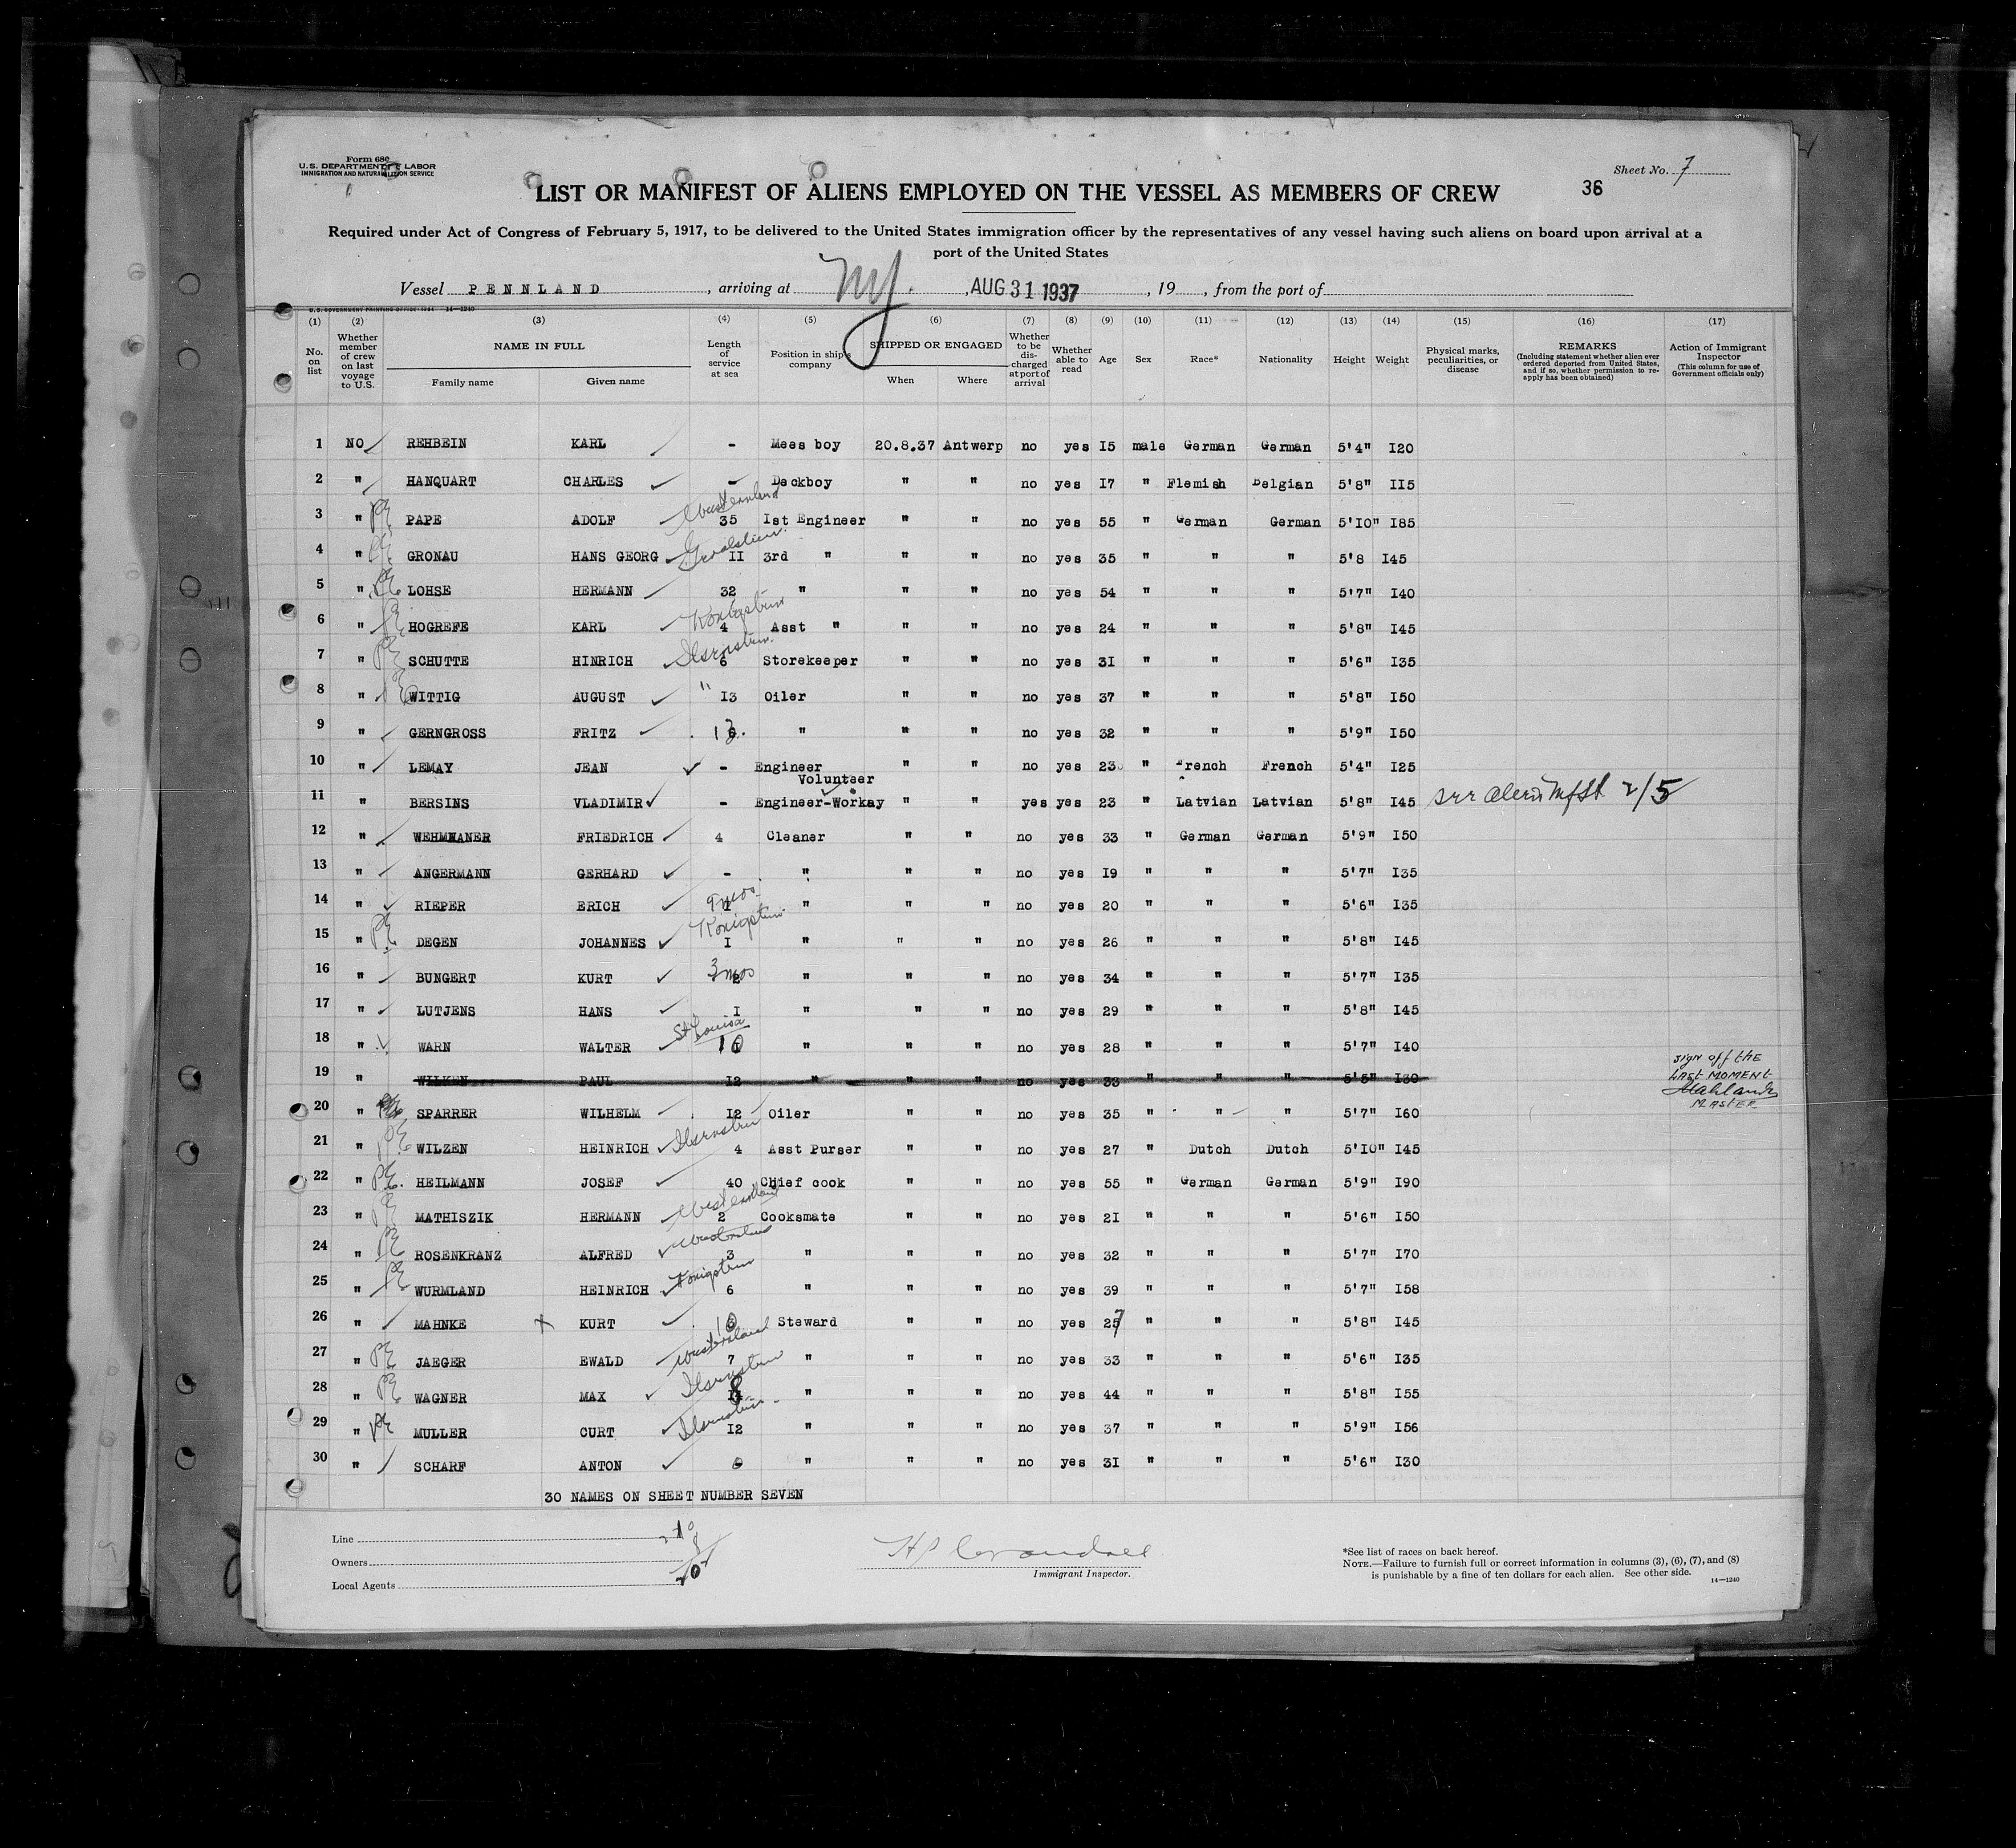 Form 680
U.S. DEPARTMENT OF LABOR
IMMIGRATION AND NATURALIZATION SERVICE
Sheet No. 7
36
LIST OR MANIFEST OF ALIENS EMPLOYED ON THE VESSEL AS MEMBERS OF CREW
Required under Act of Congress of February 5, 1917, to be delivered to the United States immigration officer by the representatives of any vessel having such aliens on board upon arrival at a
port of the United States
Vessel PENNLAND, arriving at NY., AUG 31 1937, 19 , from the port of
U.S. GOVERNMENT PRINTING OFFICE 14—1240
(1) (2) (3) (4) (5) (6) (7) (8) (9) (10) (11) (12) (13) (14) (15) (16) (17)
No. on list
Whether member of crew on last voyage to U.S.
NAME IN FULL
Family name Given name
Length of service at sea
Position in ship's company
SHIPPED OR ENGAGED
When Where
Whether to be discharged at port of arrival
Whether able to read
Age Sex Race* Nationality Height Weight
Physical marks, peculiarities, or disease
REMARKS
(Including statement whether alien ever ordered deported from United States, and if so, whether permission to reapply has been obtained)
Action of Immigrant Inspector
(This column for use of Government officials only)
1 NO REHBEIN KARL - Mees boy 20.8.37 Antwerp no yes I5 male German German 5'4" I20
2 " HANQUART CHARLES - Deckboy " " no yes I7 " Flemish Belgian 5'8" II5
3 " PAPE ADOLF Westernland 35 Ist Engineer " " no yes 55 " German German 5'IO" I85
4 " GRONAU HANS GEORG II 3rd " " " no yes 35 " " " 5'8 I45
5 " LOHSE HERMANN 32 " " " no yes 54 " " " 5'7" I40
6 " HOGREFE KARL Königstein 4 Asst " " " no yes 24 " " " 5'8" I45
7 " SCHUTTE HINRICH Ilsenstein 6 Storekeeper " " no yes 3I " " " 5'6" I35
8 " WITTIG AUGUST " I3 Oiler " " no yes 37 " " " 5'8" I50
9 " GERNGROSS FRITZ " " " no yes 32 " " " 5'9" I50
10 " LEMAY JEAN - Engineer Volunteer " " no yes 23 " French French 5'4" I25
11 " BERSINS VLADIMIR - Engineer-Workay " " yes yes 23 " Latvian Latvian 5'8" I45 2/5
12 " WEHMHANER FRIEDRICH 4 Cleaner " " no yes 33 " German German 5'9" I50
13 " ANGERMANN GERHARD - " " " no yes I9 " " " 5'7" I35
14 " RIEPER ERICH 9 mos. " " " no yes 20 " " " 5'6" I35
15 " DEGEN JOHANNES Königstein I " " " no yes 26 " " " 5'8" I45
16 " BUNGERT KURT 3 mos 2 " " " no yes 34 " " " 5'7" I35
17 " LUTJENS HANS I " " " no yes 29 " " " 5'8" I45
18 " WARN WALTER St Louisa 10 " " " no yes 28 " " " 5'7" I40
19 " WILKEN PAUL I2 " " " no yes 33 " " " 5'5" I30 sign off the LAST MOMENT MASTER
20 " SPARRER WILHELM I2 Oiler " " no yes 35 " " " 5'7" I60
21 " WILZEN HEINRICH Ilsenstein 4 Asst Purser " " no yes 27 " Dutch Dutch 5'IO" I45
22 " HEILMANN JOSEF 40 Chief cook " " no yes 55 " German German 5'9" I90
23 " MATHISZIK HERMANN Westernland 2 Cooksmate " " no yes 2I " " " 5'6" I50
24 " ROSENKRANZ ALFRED Westernland 3 " " " no yes 32 " " " 5'7" I70
25 " WURMLAND HEINRICH Königstein 6 " " " no yes 39 " " " 5'7" I58
26 " MAHNKE X KURT 10 Steward " " no yes 27 " " " 5'8" I45
27 " JAEGER EWALD Westernland 7 " " " no yes 33 " " " 5'6" I35
28 " WAGNER MAX Ilsenstein 8 " " " no yes 44 " " " 5'8" I55
29 " MULLER CURT Ilsenstein I2 " " " no yes 37 " " " 5'9" I56
30 " SCHARF ANTON " " " no yes 3I " " " 5'6" I30
30 NAMES ON SHEET NUMBER SEVEN
Line
Owners
Local Agents
Immigrant Inspector.
*See list of races on back hereof.
NOTE.—Failure to furnish full or correct information in columns (3), (6), (7), and (8)
is punishable by a fine of ten dollars for each alien. See other side.
14—1240